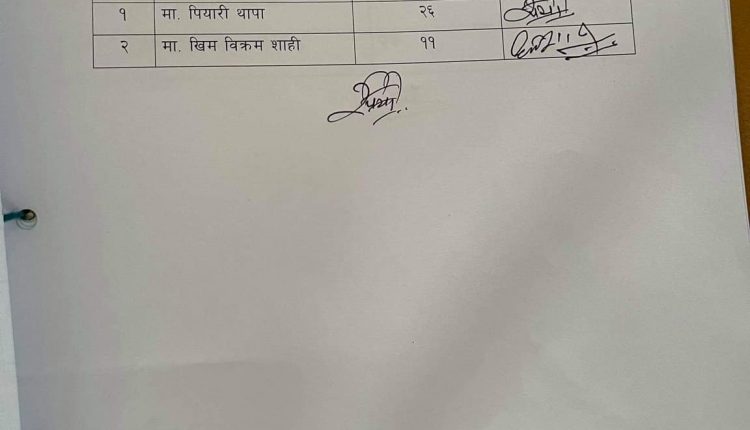 १ मा. पियारी थापा २६
२ मा. खिम विक्रम शाही ११